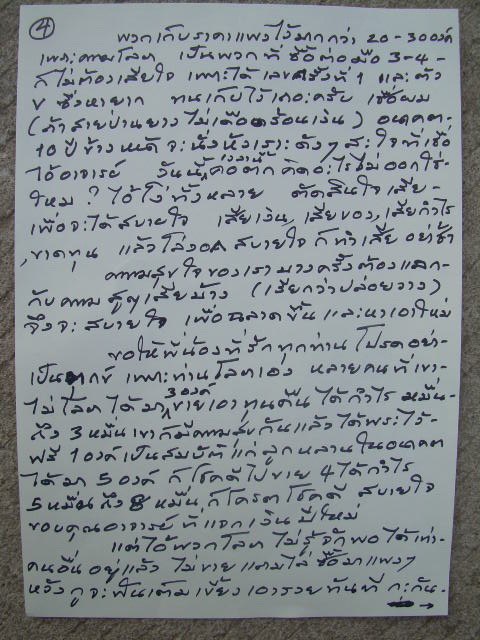 ④
พวกเก็บราคาแพงไว้มากกว่า 20-30องค์
เพราะความโลภ เป็นพวกที่ ซื้อต่อมือ 3-4-
ก็ไม่ต้องเสียใจ เพราะได้ เลขครั้งที่ 1 และตัว
V ซึ่งหายาก ทนเก็บไว้เถอะครับ เชื่อผม
(ถ้าสายป่านยาว ไม่เดือดร้อนเงิน) อนาคต-
10 ปีข้างหน้า จะนั่งหัวเราะดังๆ สะใจที่เชื่อ
ไอ้อาจารย์ วันนี้ เวลานี้ คอตก คิดอะไรไม่ออกใช่-
ไหม ? ไอ้โง่ทั้งหลาย ตัดสินใจ เสีย-
เพื่อจะได้สบายใจ เสียเงิน, เสียของ, เสียกำไร
,ขาดทุน แล้วโล่งอก สบายใจ ก็ทำเสีย อย่าช้า
ความสุขใจของเราบางครั้งต้องแลก-
กับความสูญเสียบ้าง (เรียกว่าปล่อยวาง)
จึงจะสบายใจ เพื่อฉลาดขึ้น และหาเอาใหม่
ขอให้พี่น้องที่รักทุกท่าน โปรดอย่า-
เป็นทุกข์ เพราะท่านโลภเอง หลายคนที่เขา-
ไม่โลภ ได้มา 3 องค์ ขายเอาทุนคืน ได้กำไร หมื่น-
ถึง 3 หมื่น เขาก็มีความสุขกันแล้ว ได้พระไว้-
ฟรี 1 องค์ เป็นสมบัติแก่ลูกหลานในอนาคต
ได้มา 5 องค์ ก็โชคดีไปขาย 4 ได้กำไร
5 หมื่น ถึง 8 หมื่น ก็โครตโชคดี สบายใจ
ขอบคุณอาจารย์ ที่แจกเงินปีใหม่
แต่ไอ้พวกโลภ ไม่รู้จักพอ ได้เท่า-
คนอื่นอยู่แล้ว ไม่ขาย แถมไล่ซื้อมาแพงๆ
หวังกูจะฟันเต็มเขี้ยว เอารวยทันที กะกัน-
→